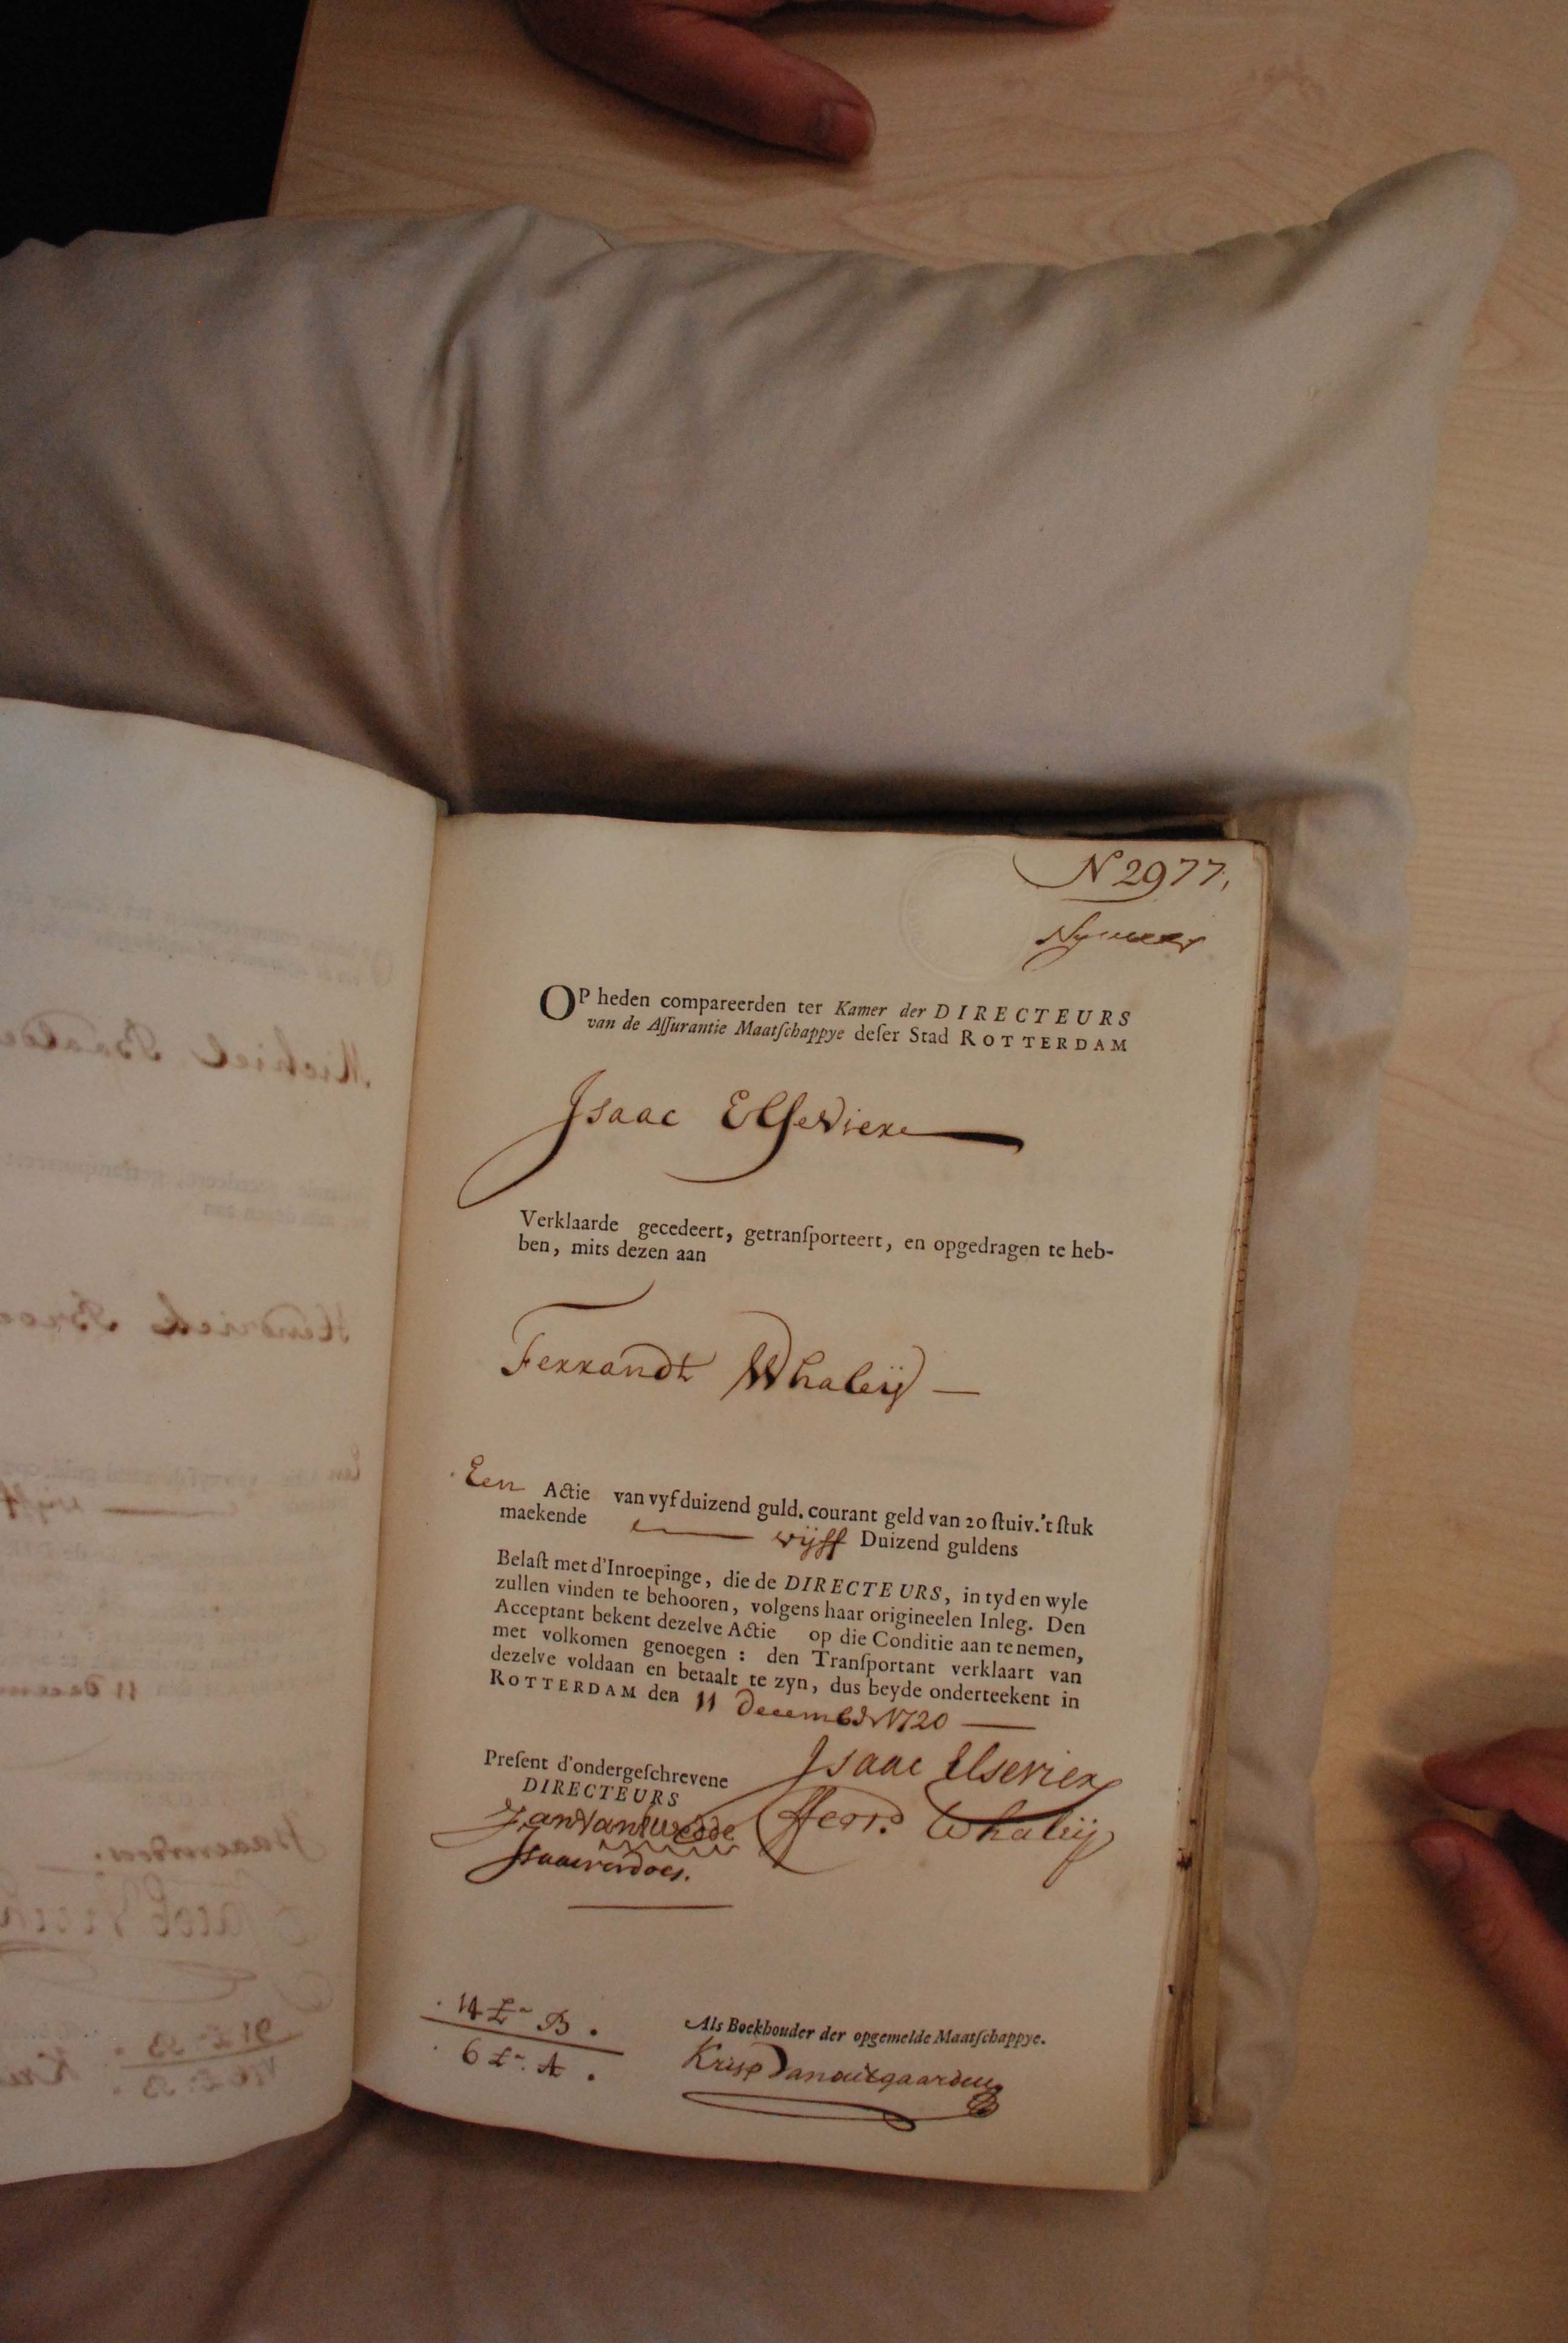 N 2977,
OP heden compareerden ter Kamer der DIRECTEURS
van de Aſſurantie Maatſchappye deſer Stad ROTTERDAM
Isaac Elsevier
Verklaarde gecedeert, getranſporteert, en opgedragen te heb-
ben, mits dezen aan
Ferrandt Whaleÿ
Een Actie van vyf duizend guld. courant geld van 20 ſtuiv. 't ſtuk
maekende vijff Duizend guldens
Belaſt met d'Inroepinge, die de DIRECTEURS, in tyd en wyle
zullen vinden te behooren, volgens haar origineelen Inleg. Den
Acceptant bekent dezelve Actie op die Conditie aan te nemen,
met volkomen genoegen : den Tranſportant verklaart van
dezelve voldaan en betaalt te zyn, dus beyde onderteekent in
ROTTERDAM den 11 December 1720
Preſent d'ondergeſchrevene
DIRECTEURS
Isaac Elsevier
Ferr.d Whaleÿ
14 Lr B.
6 Lr. A.
Als Boekhouder der opgemelde Maatſchappye.